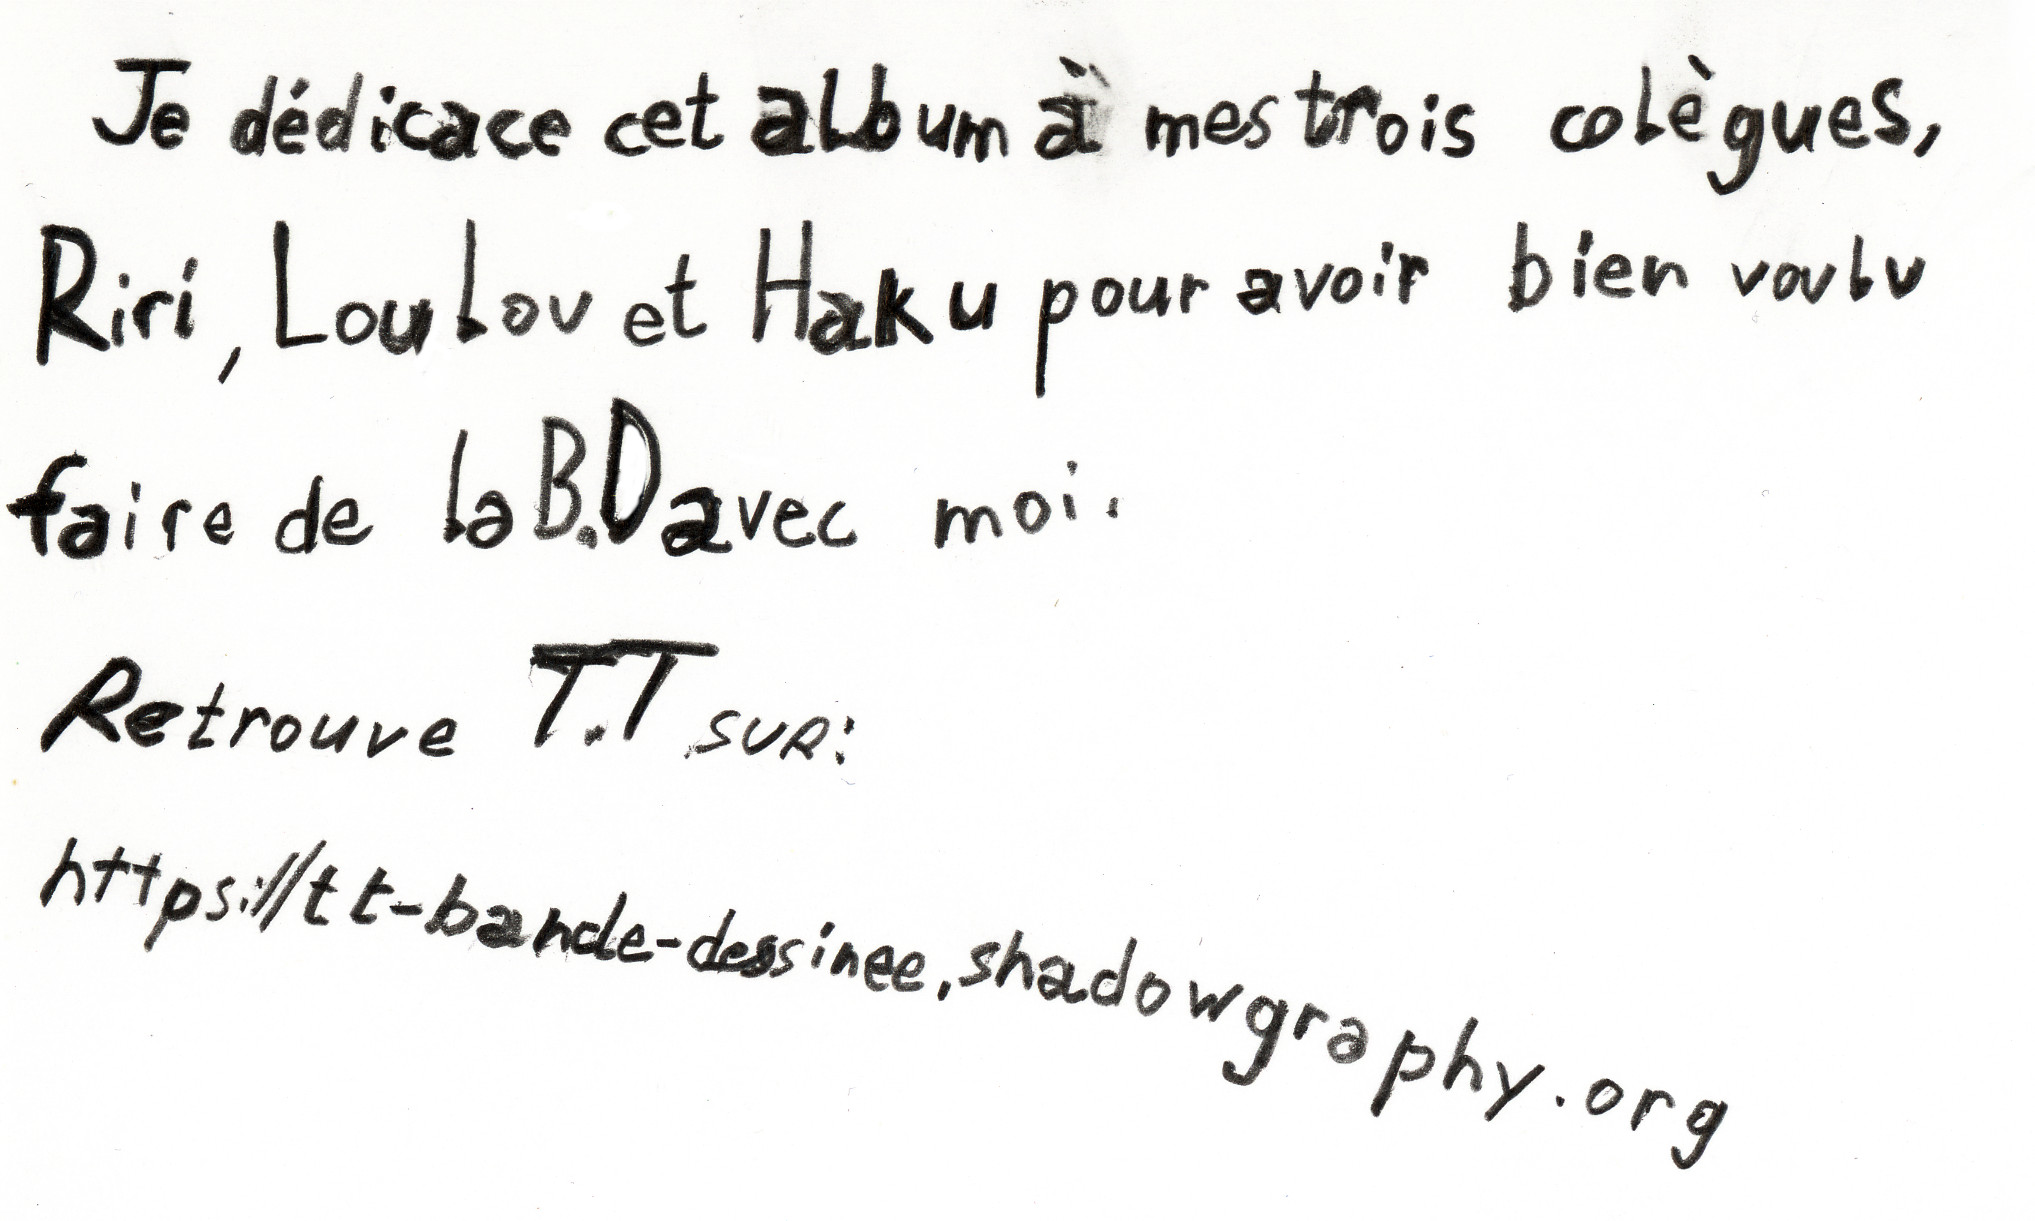 Je dédicace cet album à mes trois colègues,
Riri, Loulou et Haku pour avoir bien voulu
faire de la B.D avec moi.
Retrouve T.T sur:
https://tt-bande-dessinee.shadowgraphy.org